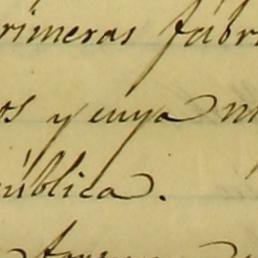 rimeras fábri
os y cuya m
pública.